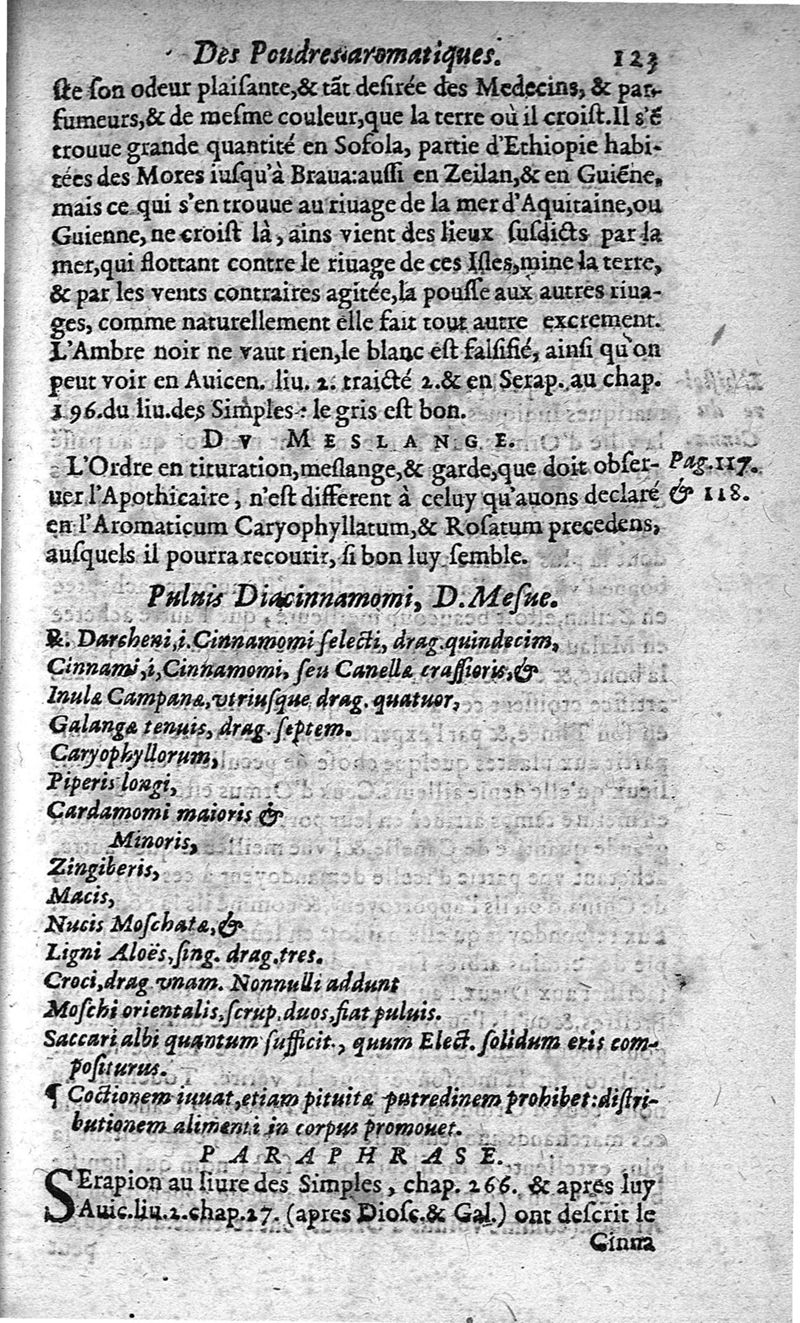 Des Poudres aromatiques. 123
ste son odeur plaisante,& tāt desirée des Medecins, & par-
fumeurs,& de mesme couleur,que la terre où il croist.Il s'ē
trouue grande quantité en Sofola, partie d'Ethiopie habi-
tées des Mores iusqu'à Braua:aussi en Zeilan,& en Guiēne,
mais ce qui s'en trouue au riuage de la mer d'Aquitaine,ou
Guienne, ne croist là, ains vient des lieux susdicts par la
mer,qui flottant contre le riuage de ces Isles,mine la terre,
& par les vents contraires agitée,la pousse aux autres riua-
ges, comme naturellement elle fait tout autre excrement.
L'Ambre noir ne vaut rien,le blanc est falsifié, ainsi qu'on
peut voir en Auicen. liu. 2. traicté 2.& en Serap. au chap.
196.du liu.des Simples: le gris est bon.
DV MESLANGE.
L'Ordre en tituration,meslange,& garde,que doit obser- Pag.117.
uer l'Apothicaire, n'est different à celuy qu'auons declaré & 118.
en l'Aromaticum Caryophyllatum,& Rosatum precedens,
ausquels il pourra recourir, si bon luy semble.
Puluis Diacinnamomi, D. Mesue.
℞. Darcheni,i.Cinnamomi selecti, drag.quindecim,
Cinnami,i,Cinnamomi, seu Canellæ crassioris,&
Inulæ Campanæ,vtriusque drag. quatuor,
Galangæ tenuis, drag. septem.
Caryophyllorum,
Piperis longi,
Cardamomi maioris &
Minoris,
Zingiberis,
Macis,
Nucis Moschatæ,&
Ligni Aloës,sing. drag.tres.
Croci,drag vnam. Nonnulli addunt
Moschi orientalis, scrup.duos,fiat puluis.
Saccari albi quantum sufficit., quum Elect. solidum eris com-
positurus.
¶ Coctionem iuuat,etiam pituitæ putredinem prohibet:distri-
butionem alimenti in corpus promouet.
PARAPHRASE.
SErapion au liure des Simples, chap. 266. & apres luy
Auic.liu.2.chap.27. (apres Diosc.& Gal.) ont descrit le
Cinna